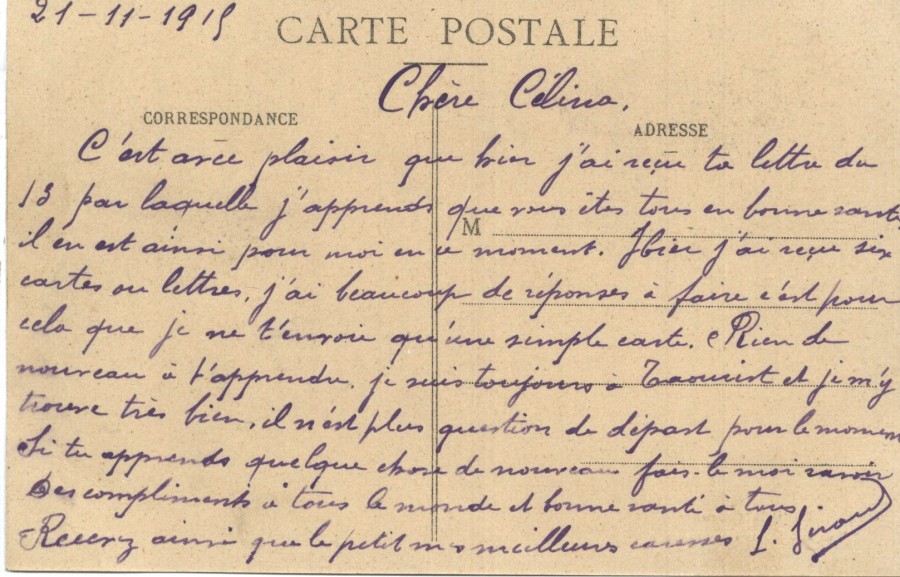 21-11-1915
CARTE POSTALE
Chère Célina,
CORRESPONDANCE
ADRESSE
C'est avec plaisir que hier j'ai reçu ta lettre du
13 par laquelle j'apprends que vous êtes tous en bonne santé
M
il en est ainsi pour moi en ce moment. Hier j'ai reçu six
cartes ou lettres, j'ai beaucoup de réponses à faire c'est pour
cela que je ne t'envoie qu'une simple carte. Rien de
nouveau à t'apprendre, je suis toujours à Taourirt et je m'y
trouve très bien, il n'est plus question de départ pour le moment
Si tu apprends quelque chose de nouveau fais-le moi savoir
Des compliments à tous le monde et bonne santé à tous
Recevez ainsi que le petit mes meilleures caresses